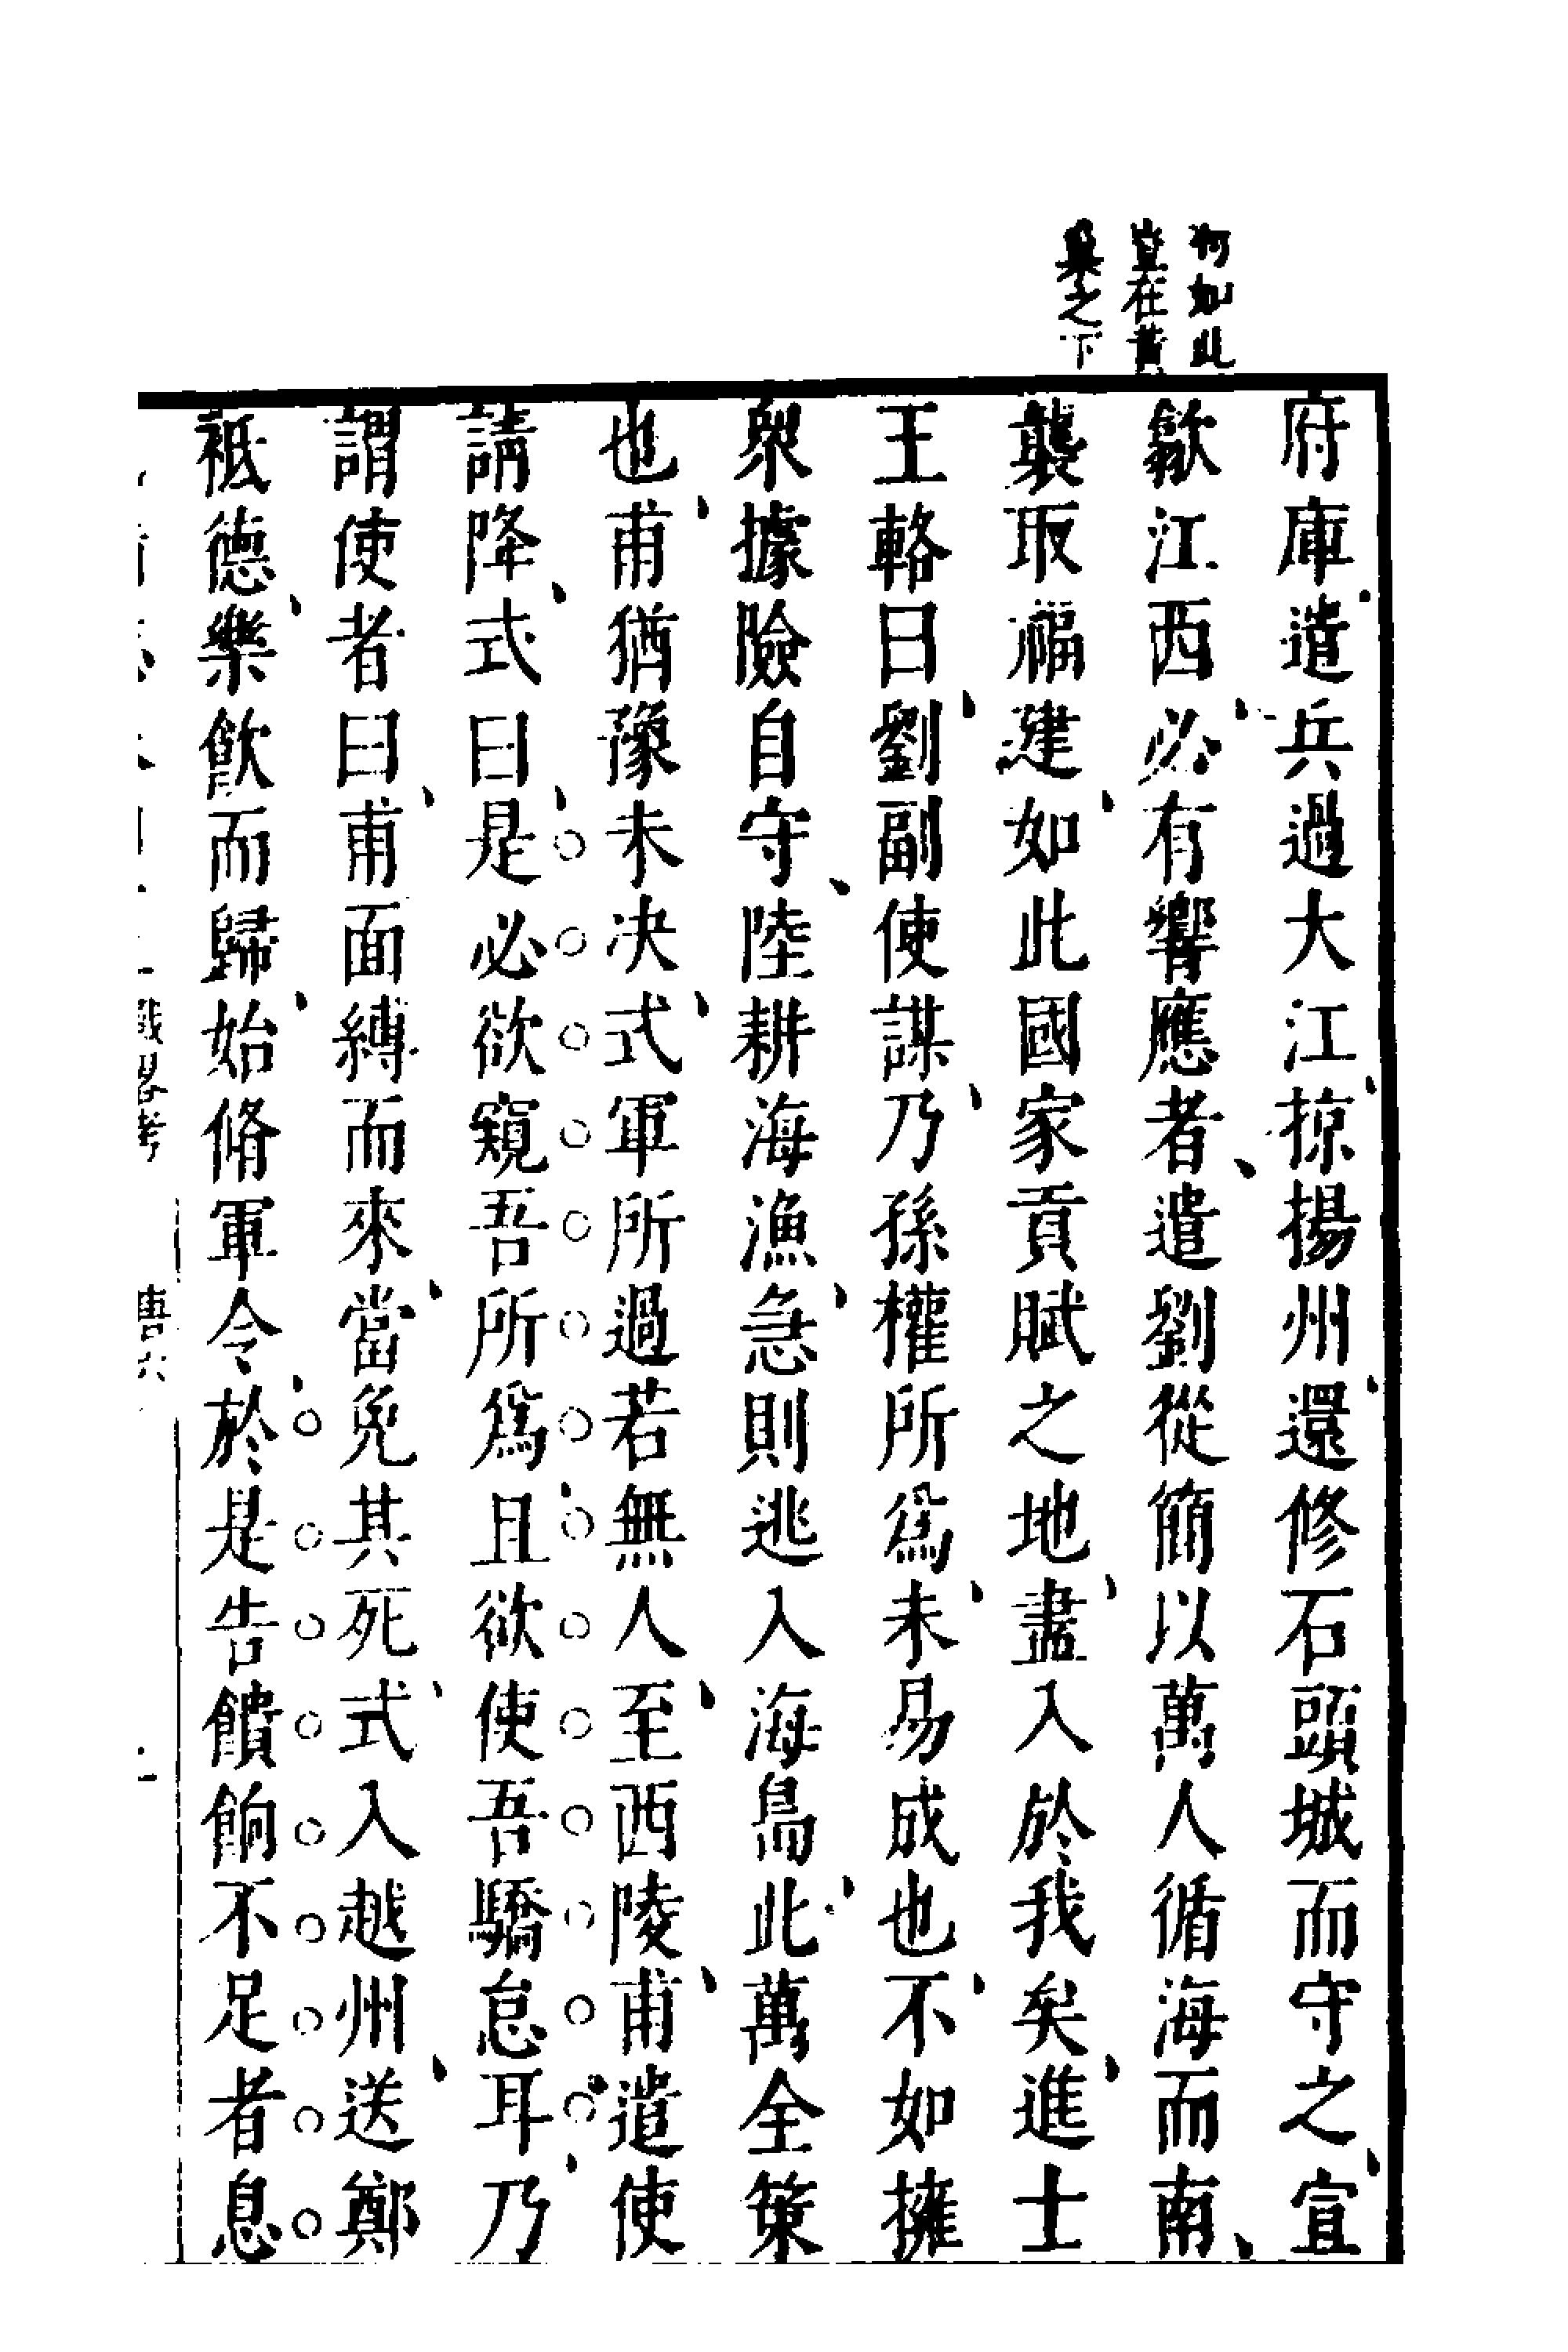 何如此
豈在黃
巢之下
府庫遣兵過大江掠揚州還修石頭城而守之宣
歙江西必有響應者遣劉從簡以萬人循海而南
襲取福建如此國家貢賦之地盡入於我矣進士
王輅曰劉副使謀乃孫權所爲未易成也不如擁
衆據險自守陸耕海漁急則逃入海島此萬全策
也甫猶豫未决式軍所過若無人至西陵甫遣使
請降式曰是必欲窺吾所爲且欲使吾驕怠耳乃
謂使者曰甫面縛而來當免其死式入越州送鄭
祗德樂飮而歸始脩軍令於是告饋餉不足者息
戰畧考
唐六